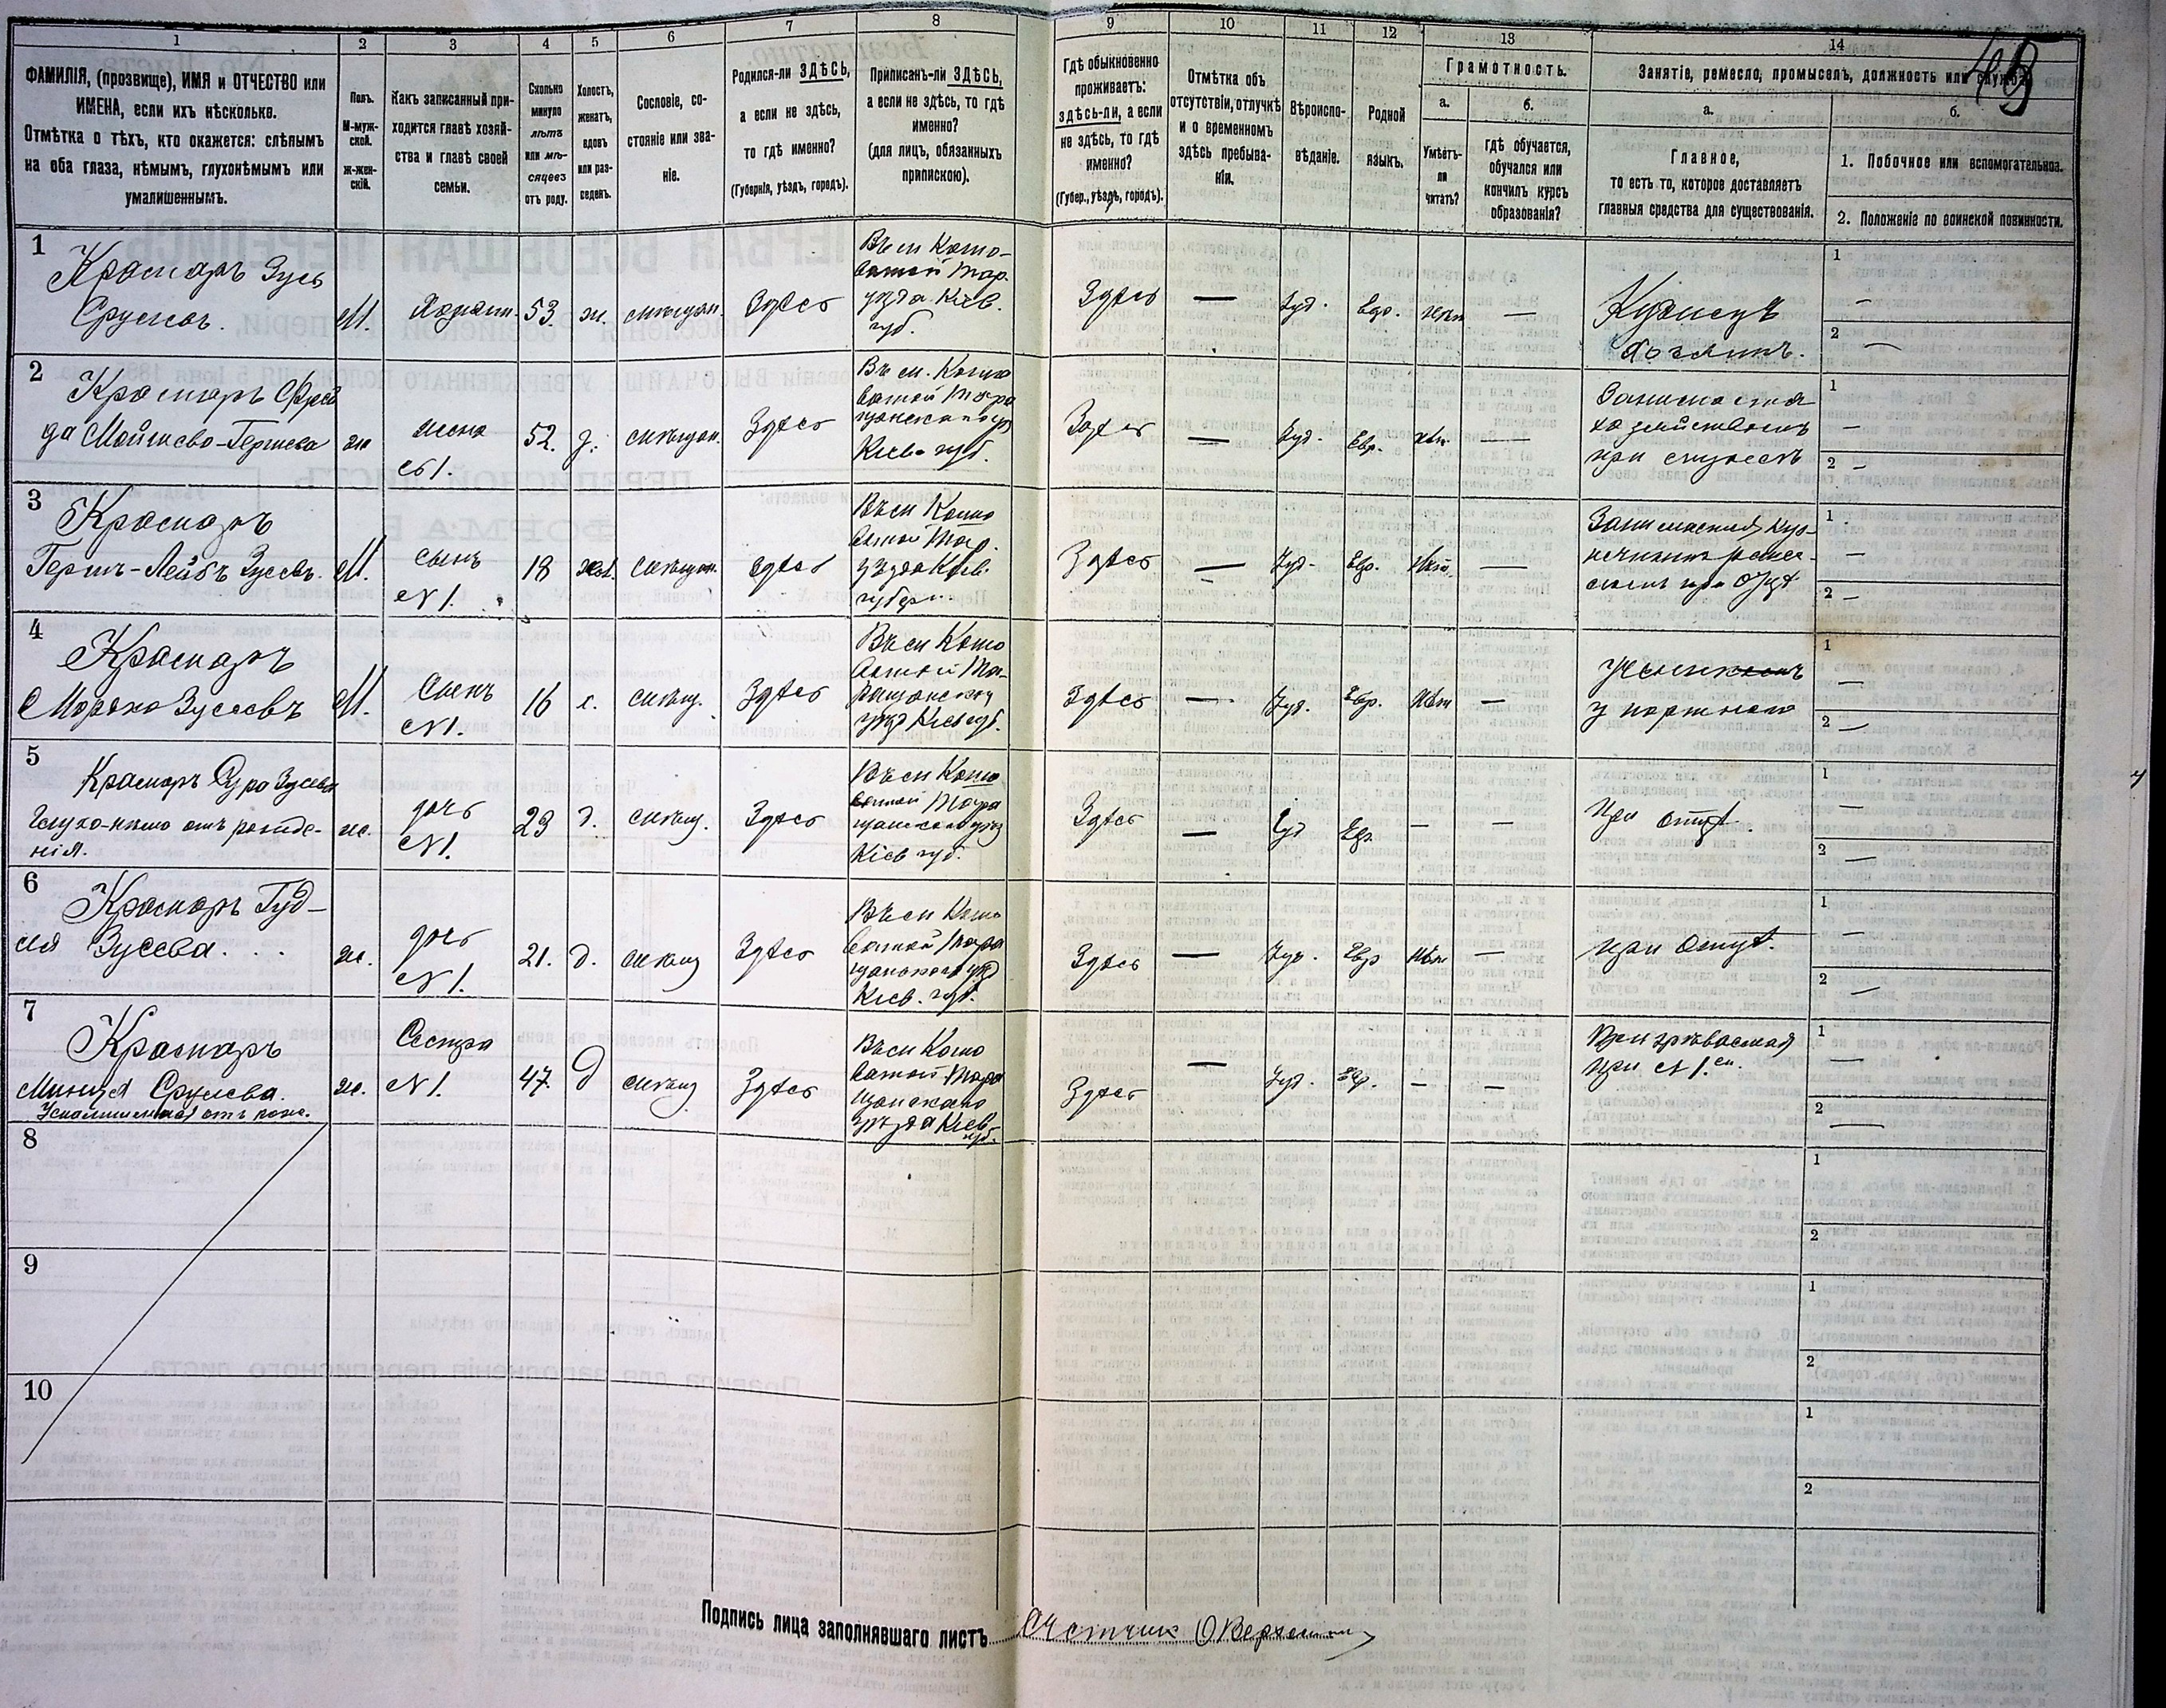 1 2 3 4 5 6 7 8 9 10 11 12 13 14
ФАМИЛІЯ, (прозвище), ИМЯ и ОТЧЕСТВО или
ИМЕНА, если ихъ нѣсколько.
Отмѣтка о тѣхъ, кто окажется: слѣпымъ
на оба глаза, нѣмымъ, глухонѣмымъ или
умалишеннымъ.
Полъ.
М-муж-
ской.
ж-жен-
скій.
Какъ записанный при-
ходится главѣ хозяй-
ства и главѣ своей
семьи.
Сколько
минуло
лѣтъ
или мѣ-
сяцевъ
отъ роду.
Холостъ,
женатъ,
вдовъ
или раз-
веденъ.
Сословіе, со-
стояніе или зва-
ніе.
Родился-ли ЗДѢСЬ,
а если не здѣсь,
то гдѣ именно?
(Губернія, уѣздъ, городъ).
Приписанъ-ли ЗДѢСЬ,
а если не здѣсь, то гдѣ
именно?
(для лицъ, обязанныхъ
припискою).
Гдѣ обыкновенно
проживаетъ:
здѣсь-ли, а если
не здѣсь, то гдѣ
именно?
(Губер., уѣздъ, городъ).
Отмѣтка объ
отсутствіи, отлучкѣ
и о временномъ
здѣсь пребыва-
ніи.
Вѣроиспо-
вѣданіе.
Родной
языкъ.
Грамотность.
а.
Умѣетъ-
ли
читать?
б.
гдѣ обучается,
обучался или
кончилъ курсъ
образованія?
Занятіе, ремесло, промыселъ, должность или служба.
а.
Главное,
то есть то, которое доставляетъ
главныя средства для существованія.
б.
1. Побочное или вспомогательное.
2. Положеніе по воинской повинности.
1
Краснаръ Зусь
Срулевъ.
М.
Хозяин.
53.
ж.
мѣщан.
Здѣсь
Въ м Кото-
ватой Тар.
уѣзда Кіев.
губ.
Здѣсь
—
Іуд.
Евр.
нѣт
—
Кузнецъ
1
—
2
—
2
Краснаръ Фрей
да Мойшево-Гершева
ж
жена
№ 1.
52.
мѣщан.
Здѣсь
Въ м. Кото
ватой Тара
Кіев. губ.
Здѣсь
—
Іуд.
Евр.
нѣт
—
Занимается
хозяйством
1
—
2 —
3
Краснаръ
Герш-Лейбъ Зусевъ.
М.
сынъ
№ 1.
18
хол.
мѣщан.
здѣсь
Въ м Кото
ватой Тар.
уѣзда Кіев.
губерн.
Здѣсь
—
Іуд.
Евр.
Нѣт.
—
Занимается куз-
нечнымъ ремес-
ломъ при отцѣ
1
—
2 —
4
Краснаръ
Мордко Зусевъ
М.
Сынъ
№ 1.
16
х.
мѣщ.
Здѣсь
Въ м Кото
ватой Та-
ращанскаго
уѣзд Кіев губ.
Здѣсь
—
Іуд.
Евр.
Нѣт
—
Ученикомъ
у портнаго
1
—
2 —
5
Краснаръ Сура Зусева
Глухо-нѣма отъ рожде-
нія.
ж.
дочь
№ 1.
23
д.
мѣщ.
Здѣсь
Въ м Кото
ватой Тара
щанскаго уѣз
Кіев губ.
Здѣсь
—
Іуд
Евр.
—
—
при отцѣ.
1
—
2
—
6
Краснаръ Гуд-
ля Зусева. . .
ж.
дочь
№ 1.
21.
д.
мѣщ
Здѣсь
Въ м Кото
ватой Тара
щанскаго уѣз
Кіев. губ.
Здѣсь
—
Іуд.
Евр
Нѣт
—
при отцѣ.
1
—
2
—
7
Краснаръ
Минця Срулева.
Умалишенная отъ рожд.
ж.
Сестра
№ 1.
47.
д
мѣщ
Здѣсь
Въ м Кото
ватой Тара
щанскаго
уѣзда Кіев.
губ.
Здѣсь
—
Іуд.
Евр.
—
—
Призрѣваемая
при № 1.
1
—
2
—
8
1
2
9
1
2
10
1
2
Подпись лица заполнявшаго листъ Счетчик